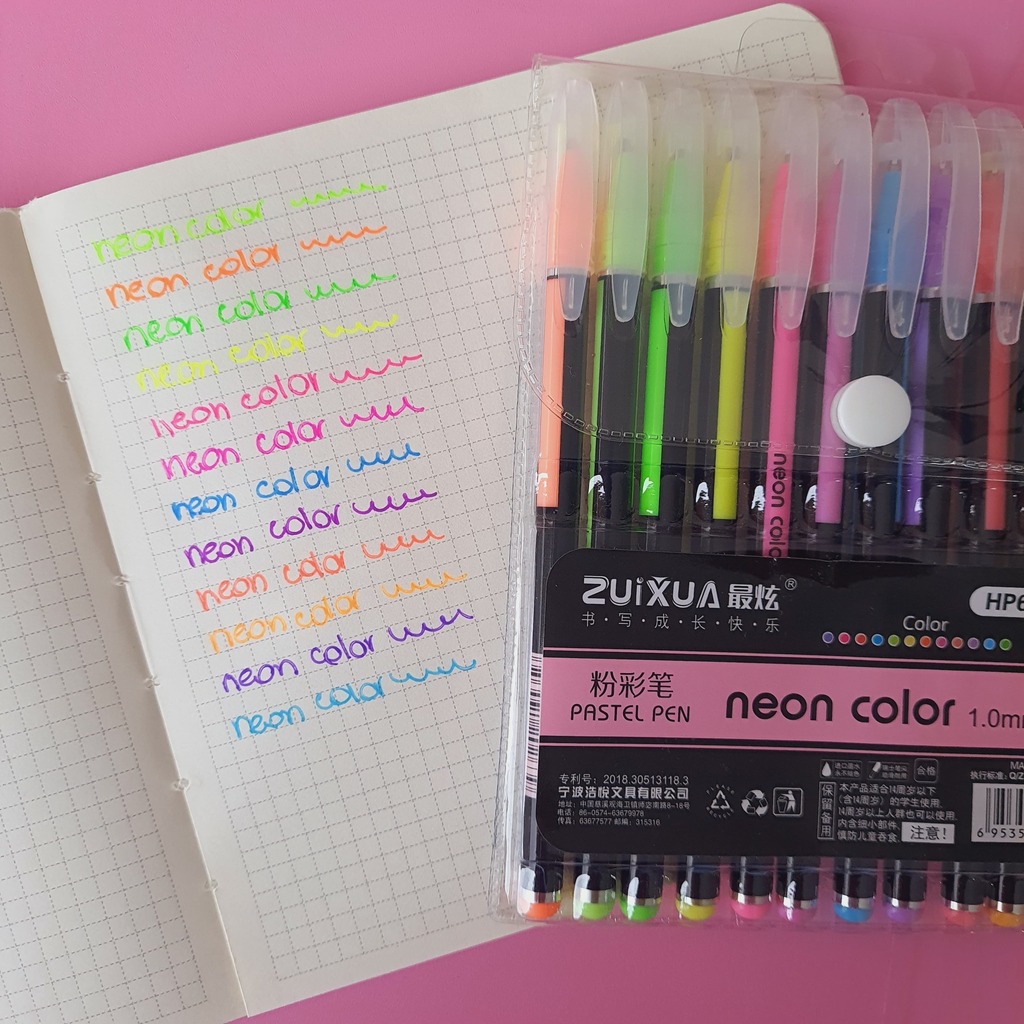 neon color
neon color
neon color
neon color
neon color
neon color
neon color
neon color
neon color
neon color
neon color
neon color
neon colo
ZUiXUA 最炫®
书·写·成·长·快·乐
HP6
Color
粉彩笔
PASTEL PEN
neon color 1.0m
专利号: 2018.30513118.3
宁波浩悦文具有限公司
地址: 中国慈溪观海卫镇师迩南路8-18号
电话: 86-0574-63679978
传真: 63677577 邮编: 315316
进口墨水
合格
MA
执行标准: Q/Z
保留备用
本产品适合14周岁以下
(含14周岁)的学生使用.
14周岁以上人群也可以使用.
内含细小部件.
慎防儿童吞食.
注意!
6 9535